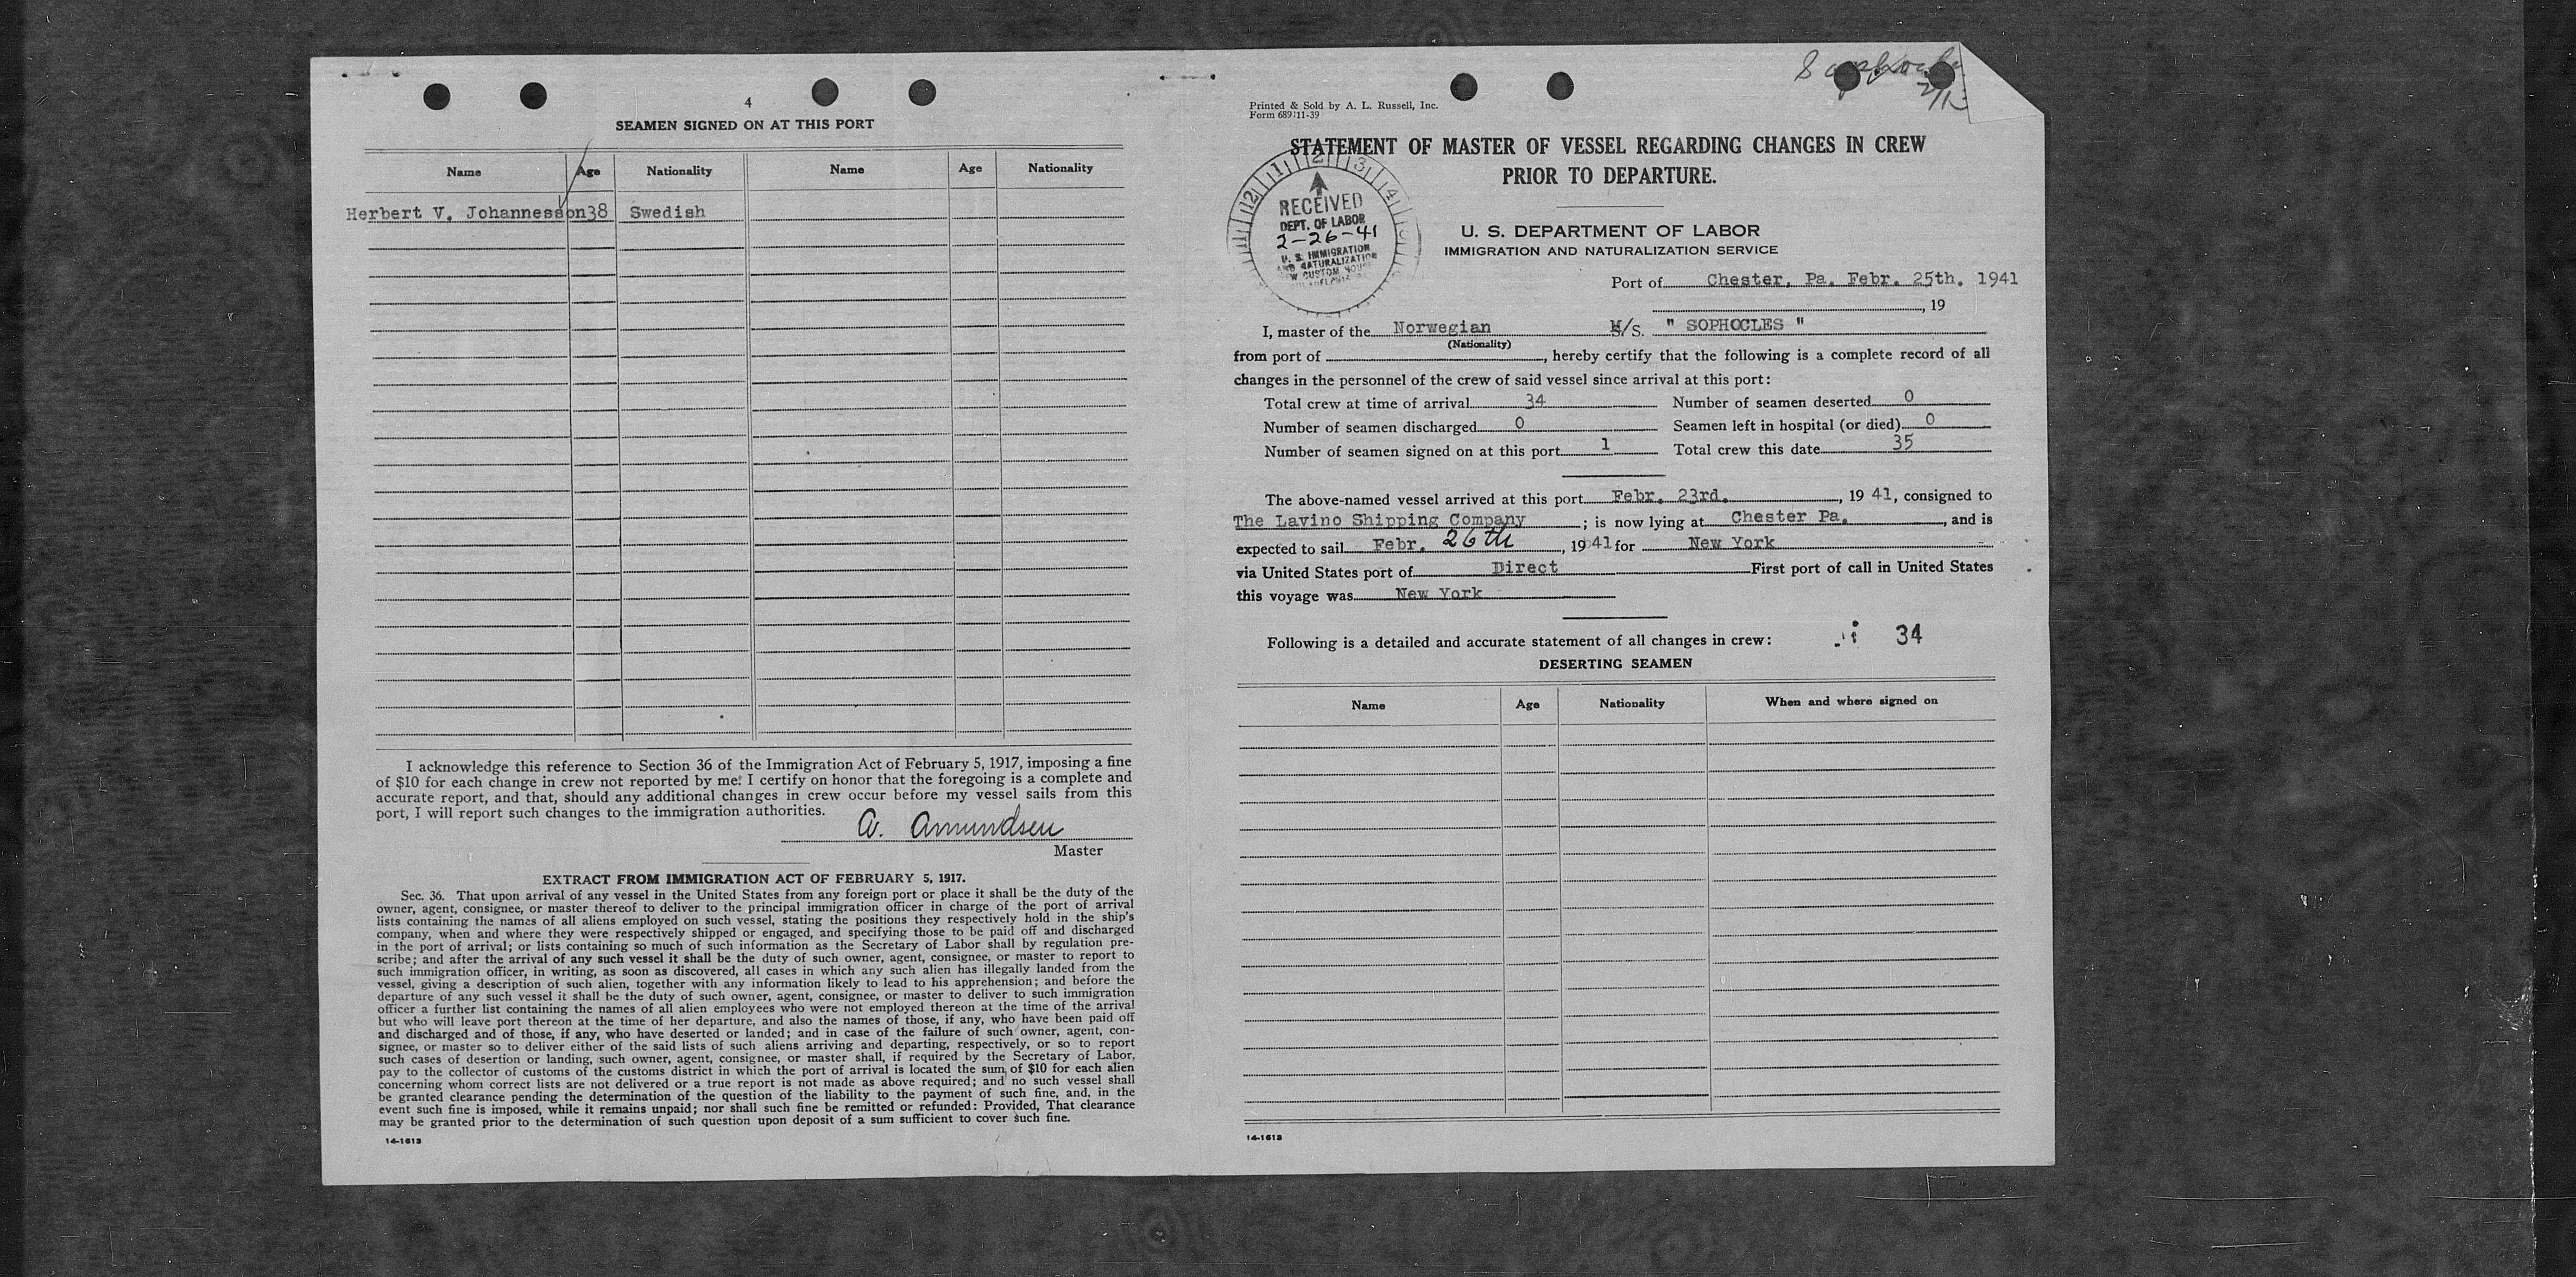 4
SEAMEN SIGNED ON AT THIS PORT
Name Age Nationality Name Age Nationality
Herbert V. Johannesson 38 Swedish
I acknowledge this reference to Section 36 of the Immigration Act of February 5, 1917, imposing a fine
of $10 for each change in crew not reported by me. I certify on honor that the foregoing is a complete and
accurate report, and that, should any additional changes in crew occur before my vessel sails from this
port, I will report such changes to the immigration authorities.
A. Amundsen
Master
EXTRACT FROM IMMIGRATION ACT OF FEBRUARY 5, 1917.
Sec. 36. That upon arrival of any vessel in the United States from any foreign port or place it shall be the duty of the
owner, agent, consignee, or master thereof to deliver to the principal immigration officer in charge of the port of arrival
lists containing the names of all aliens employed on such vessel, stating the positions they respectively hold in the ship's
company, when and where they were respectively shipped or engaged, and specifying those to be paid off and discharged
in the port of arrival; or lists containing so much of such information as the Secretary of Labor shall by regulation pre-
scribe; and after the arrival of any such vessel it shall be the duty of such owner, agent, consignee, or master to report to
such immigration officer, in writing, as soon as discovered, all cases in which any such alien has illegally landed from the
vessel, giving a description of such alien, together with any information likely to lead to his apprehension; and before the
departure of any such vessel it shall be the duty of such owner, agent, consignee, or master to deliver to such immigration
officer a further list containing the names of all alien employees who were not employed thereon at the time of the arrival
but who will leave port thereon at the time of her departure, and also the names of those, if any, who have been paid off
and discharged and of those, if any, who have deserted or landed; and in case of the failure of such owner, agent, con-
signee, or master so to deliver either of the said lists of such aliens arriving and departing, respectively, or so to report
such cases of desertion or landing, such owner, agent, consignee, or master shall, if required by the Secretary of Labor,
pay to the collector of customs of the customs district in which the port of arrival is located the sum of $10 for each alien
concerning whom correct lists are not delivered or a true report is not made as above required; and no such vessel shall
be granted clearance pending the determination of the question of the liability to the payment of such fine, and, in the
event such fine is imposed, while it remains unpaid; nor shall such fine be remitted or refunded: Provided, That clearance
may be granted prior to the determination of such question upon deposit of a sum sufficient to cover such fine.
14-1613
Printed & Sold by A. L. Russell, Inc.
Form 689:11-39
STATEMENT OF MASTER OF VESSEL REGARDING CHANGES IN CREW
PRIOR TO DEPARTURE.
12 1 2 3 4
RECEIVED
DEPT. OF LABOR
2-26-41
U. S. IMMIGRATION
AND NATURALIZATION
U. S. DEPARTMENT OF LABOR
IMMIGRATION AND NATURALIZATION SERVICE
Port of Chester, Pa. Febr. 25th. 1941
, 19
I, master of the Norwegian M/S. " SOPHOCLES "
(Nationality)
from port of , hereby certify that the following is a complete record of all
changes in the personnel of the crew of said vessel since arrival at this port:
Total crew at time of arrival 34 Number of seamen deserted 0
Number of seamen discharged 0 Seamen left in hospital (or died) 0
Number of seamen signed on at this port 1 Total crew this date 35
The above-named vessel arrived at this port Febr. 23rd. , 19 41, consigned to
The Lavino Shipping Company ; is now lying at Chester Pa. , and is
expected to sail Febr. 26th , 1941 for New York
via United States port of Direct First port of call in United States
this voyage was New York
Following is a detailed and accurate statement of all changes in crew: 34
DESERTING SEAMEN
Name Age Nationality When and where signed on
14-1613